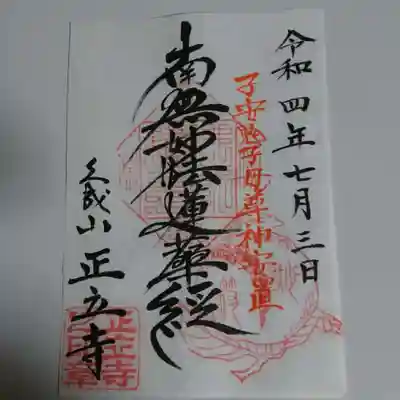 令和四年七月三日
子安鬼子母尊神安置
南無妙法蓮華経
久成山 正立寺
正立寺